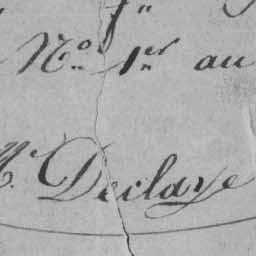 No. 1er au
Declaye